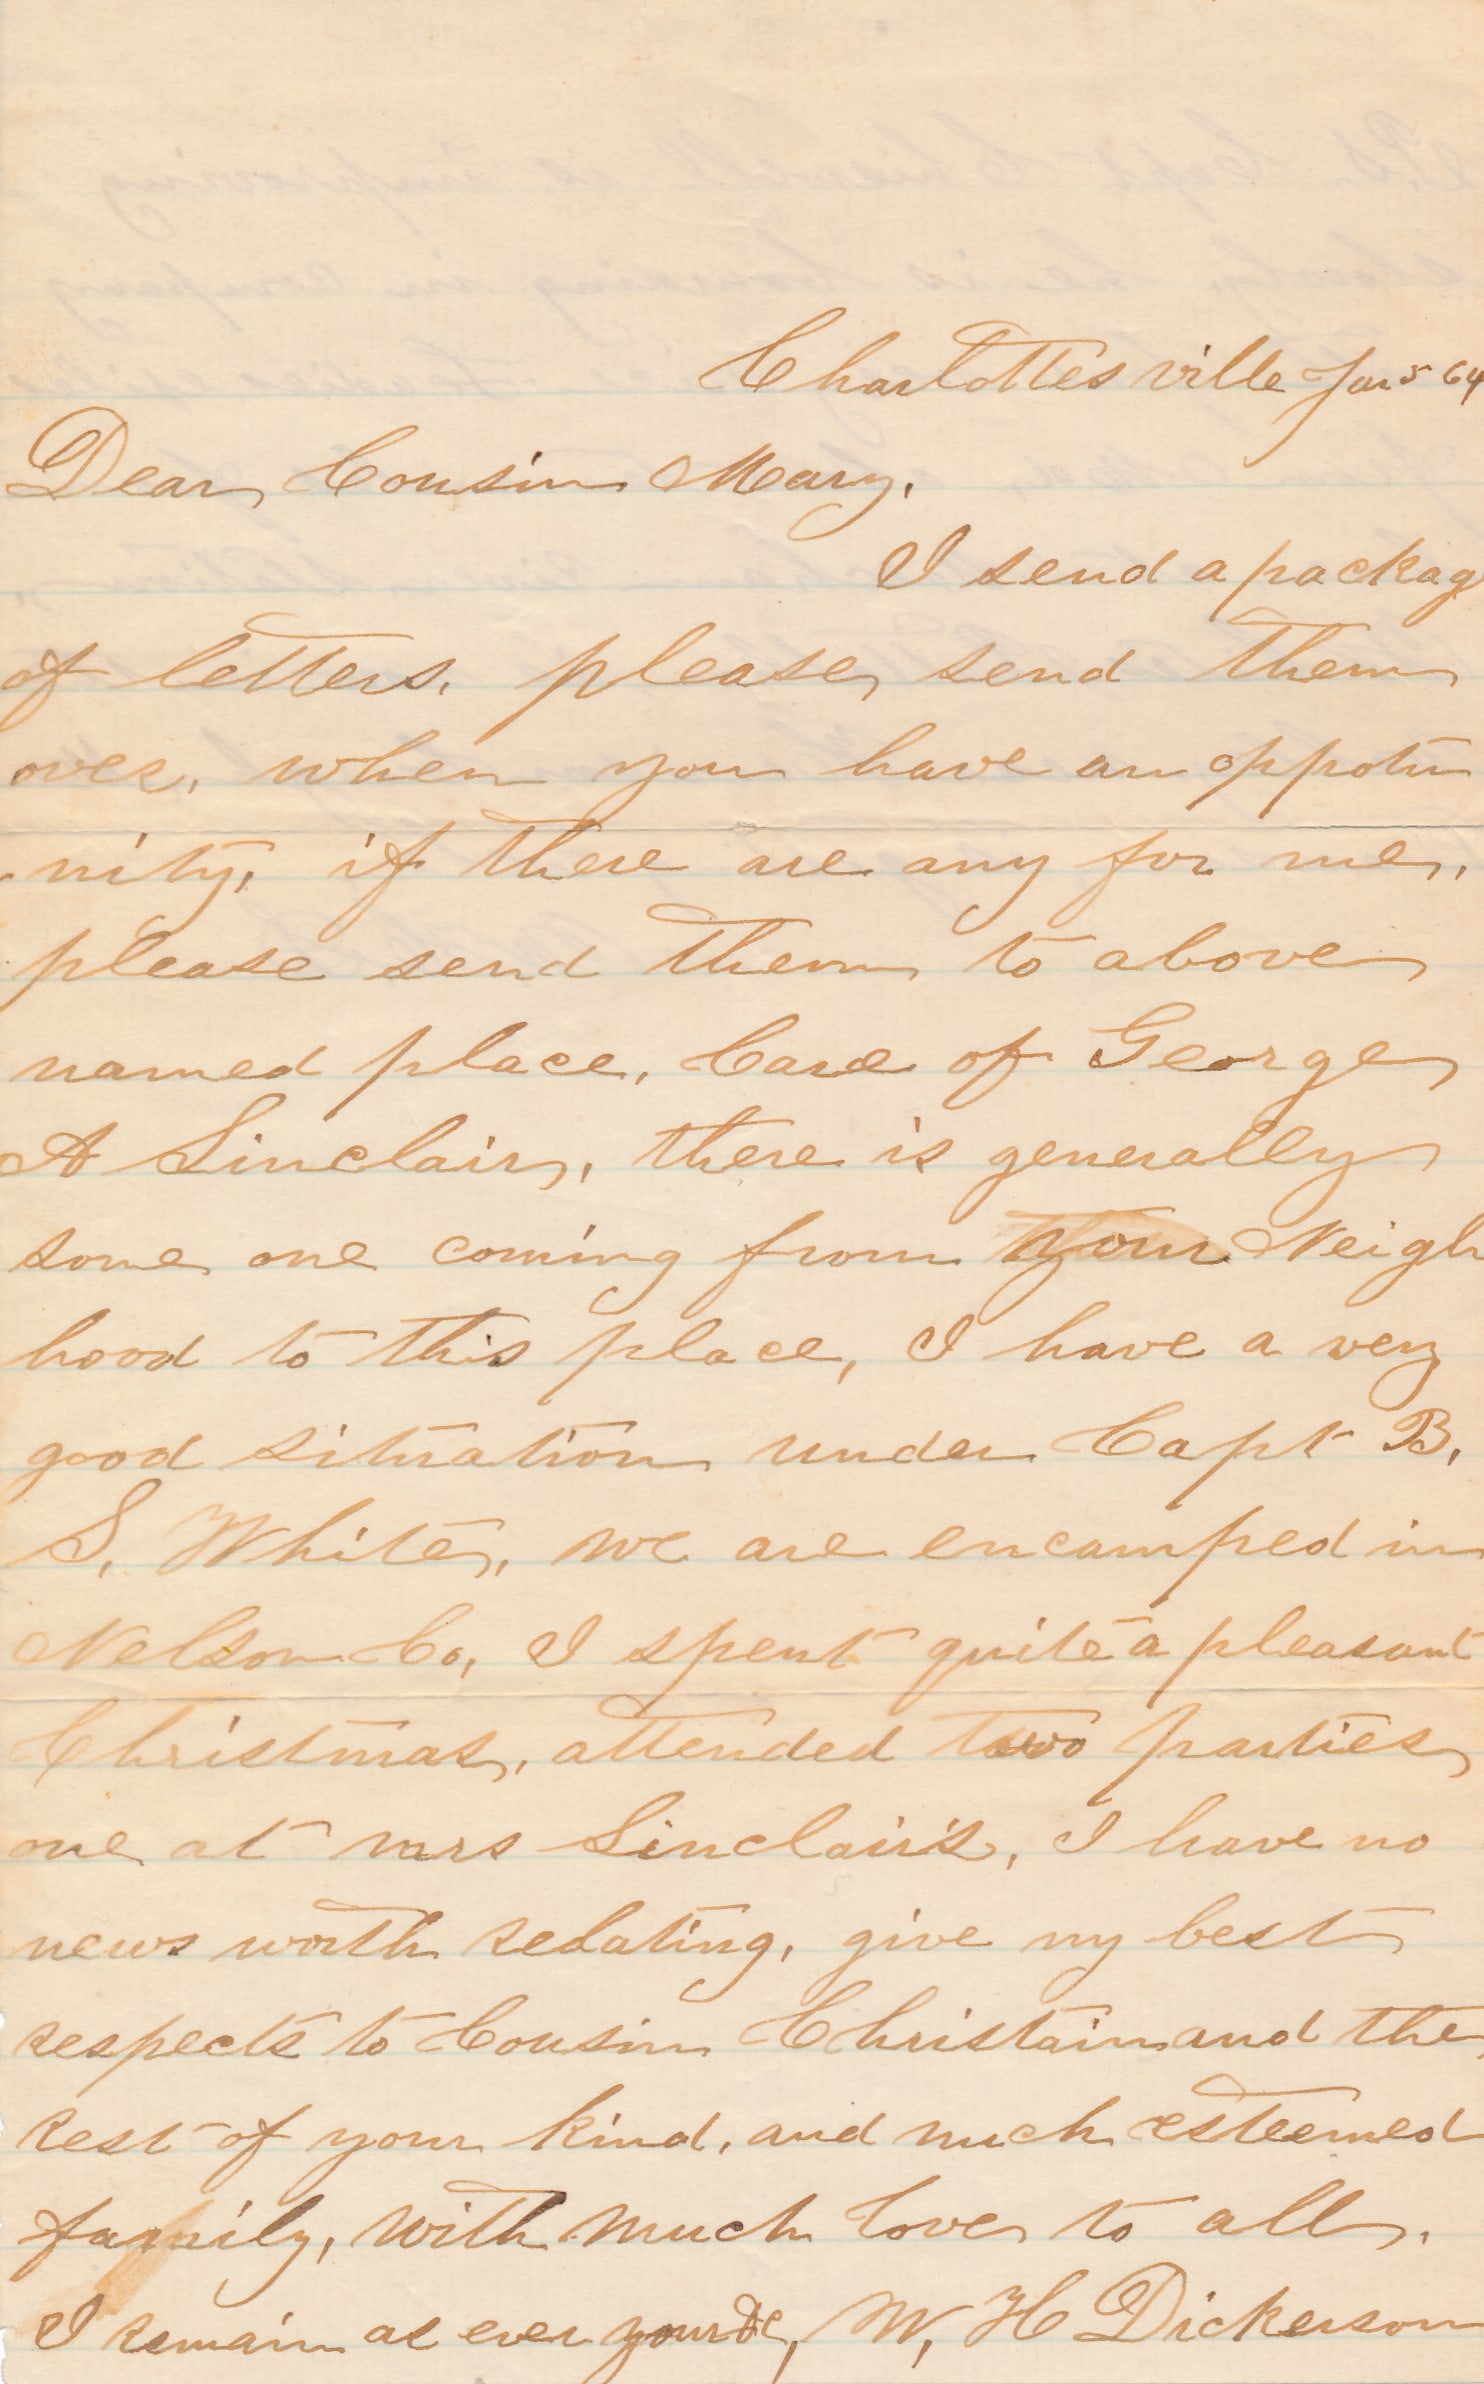 Charlottesville Jan 5 64
Dear Cousin Mary,
I send a packag
of letters, please send them
over, when you have an oppotu
nity, if there are any for me,
please send them to above
named place, Care of George
A Sinclair, there is generally
some one coming from your Neigh
hood to this place, I have a very
good situation under Capt B,
S, White, we are encamped in
Nelson Co, I spent quite a pleasant
Christmas, attended two parties
one at mrs Sinclair's, I have no
news worth relating, give my best
respects to Cousin Christain and the
rest of your kind, and much esteemed
family, with much love to all,
I remain as ever yours &c, W, H Dickerson